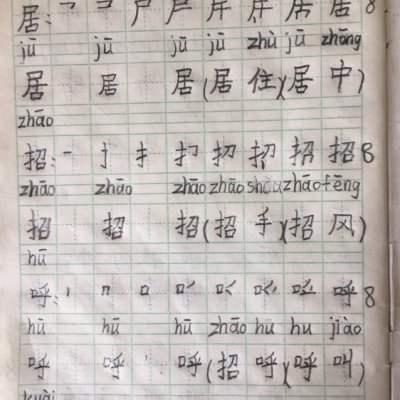 居: 8
jū jū jū jū zhù jū zhōng
居 居 居(居 住)(居 中)
zhāo
招: 一 十 扌 扌刀 招 招 8
zhāo zhāo zhāo zhāo shǒu zhāo fēng
招 招 招(招 手)(招 风)
hū
呼: 呼 8
hū hū hū zhāo hū hu jiào
呼 呼 呼(招 呼)(呼 叫)
kuài